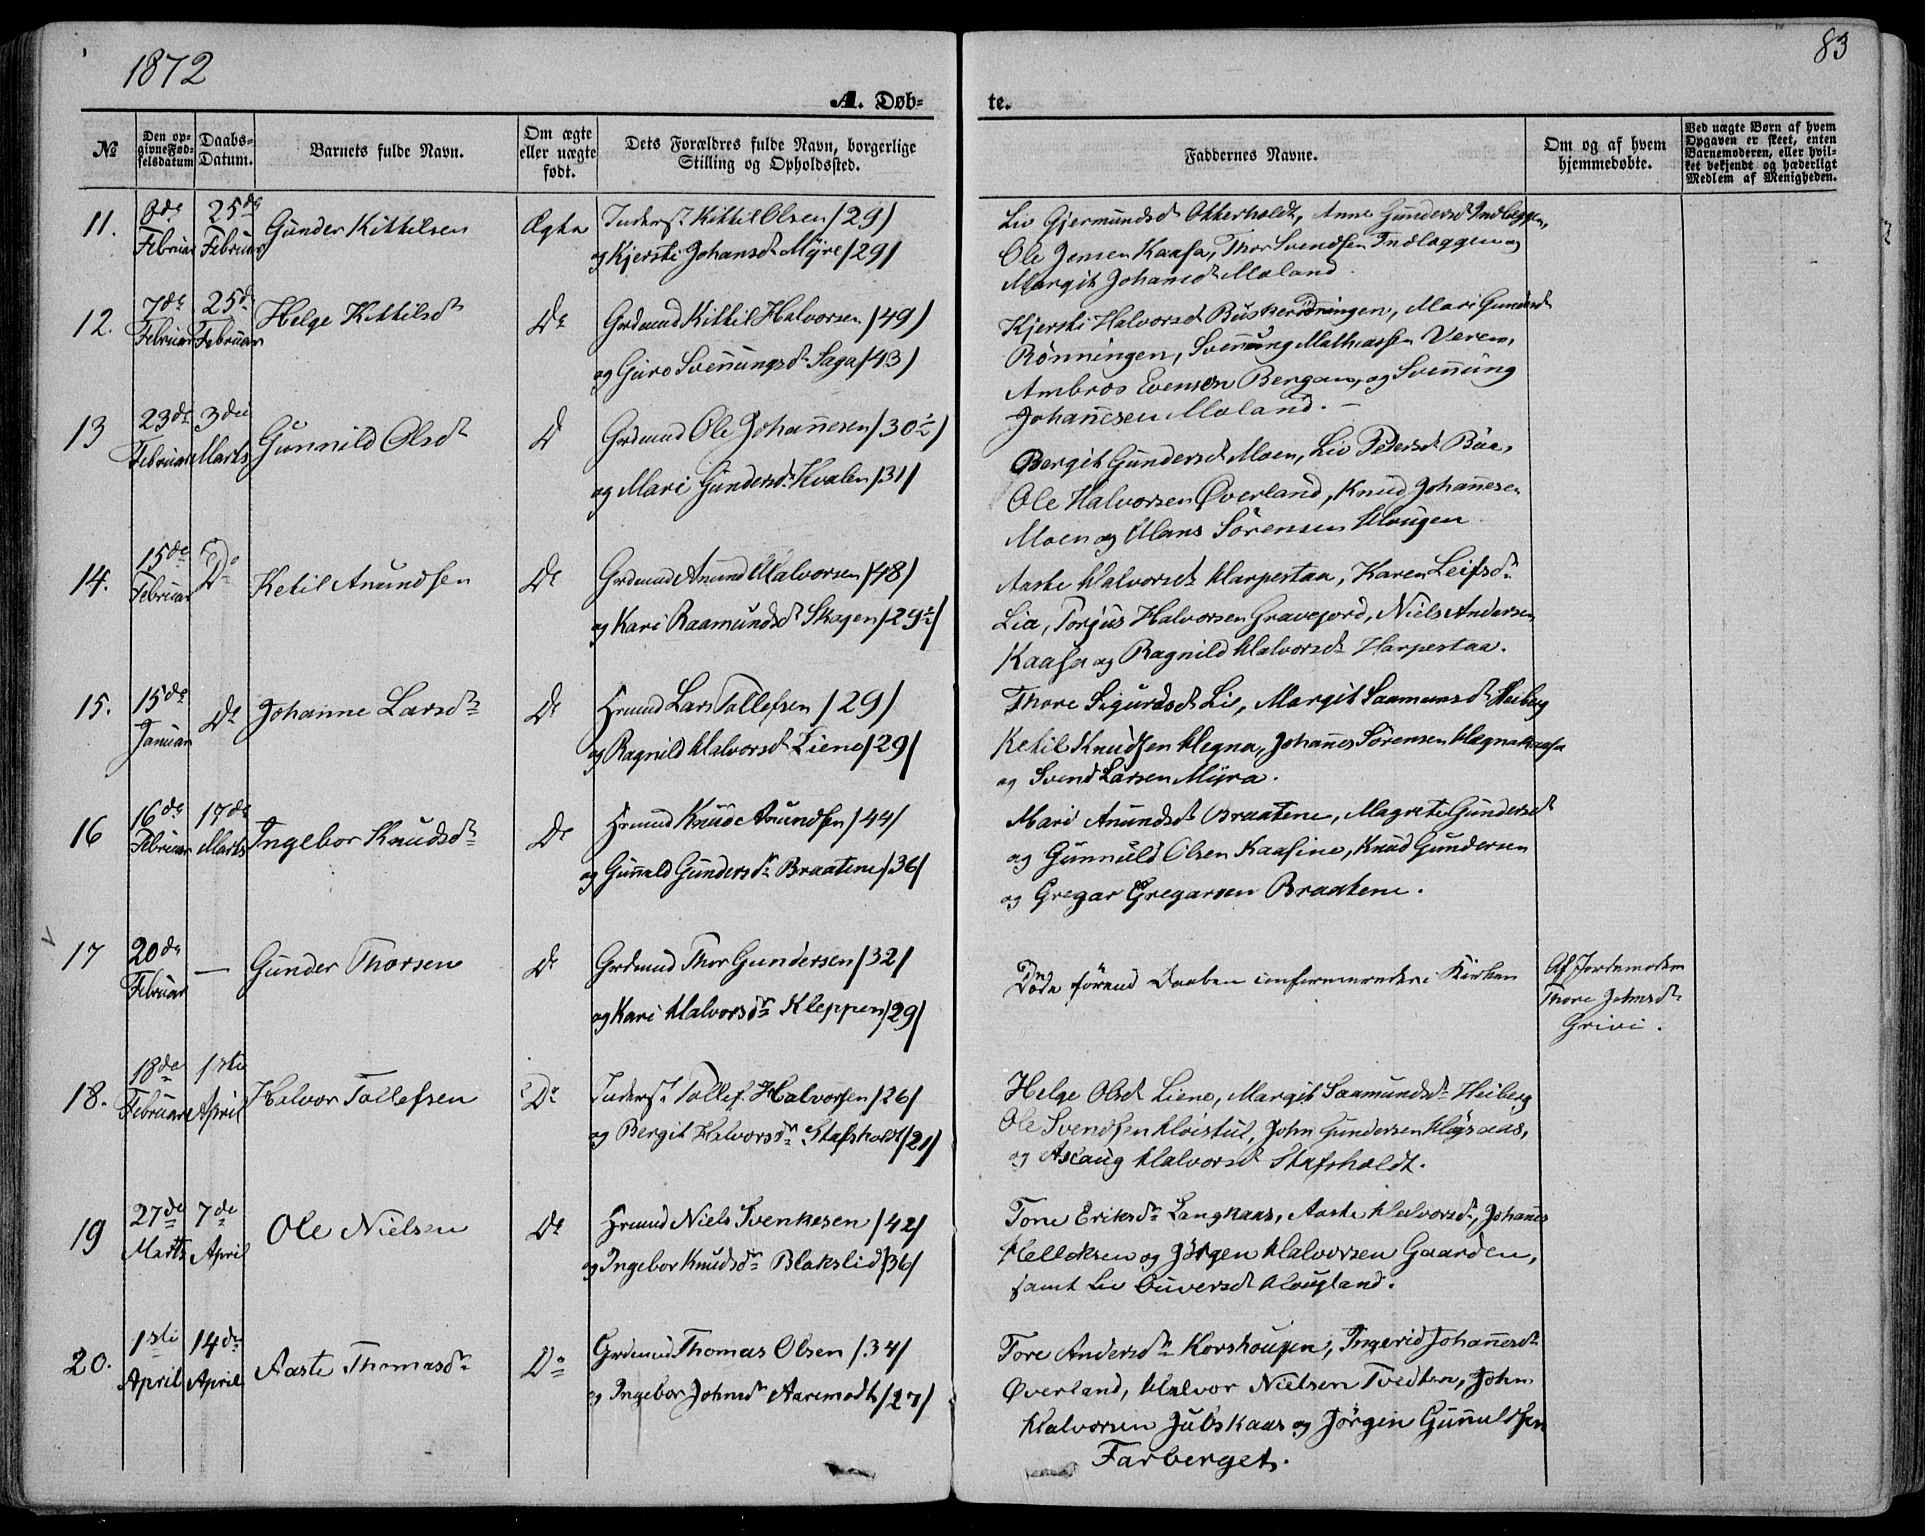 1872
83
A. Døb-
te.
№
Den op-
givne Fød-
selsdatum
Daabs-
Datum.
Barnets fulde Navn.
Om ægte
eller uægte
født.
Dets Forældres fulde Navn, borgerlige
Stilling og Opholdssted.
Faddernes Navne.
Om og af hvem
hjemmedøbte.
Ved uægte Børn af hvem
Opgaven er skeet, enten
Barnemoderen, eller hvil-
ket bekjendt og hæderligt
Medlem af Menigheden.
11.
8de
Februar
25de
Februar
Gunder Kittilsen
Ægte
Inderst Kittil Olsen /29/
og Kjersti Johansdr Myre /29/
Liv Gjermundsd Otterholdt, Anne Gundersd Indleggen,
Ole Jensen Kaasa, Thor Svendsen Indlæggen og
Margit Johansd Moland.
12.
7de
Februar
25de
Februar
Helge Kittilsdr
Do
Grdmnd Kittil Halvorsen /49/
og Guro Svennungsdr Saga /43/
Kjersti Halvorsd Buskerødningen, Mari Gundersd
Rønningen, Svennung Mathiassen Verem,
Ambros Evensen Bergan, og Svennung
Johannesen Moland. —
13
23de
Februar
3die
Marts
Gunnild Olsdr
Do
Grdmnd Ole Johannesen /30½/
og Mari Gundersdr Kvalen /31/
Bergit Gundersd Moen, Liv Petersd Bøe,
Ole Halvorsen Øverland, Knud Johannesen
Moen og Hans Sørensen Hougen.
14.
15de
Februar
Do
Ketil Anundsen
Do
Grdmnd Anund Halvorsen /48/
og Kari Raamundsdr Skogen /29½/
Aaste Halvorsdr Harpestaa, Karen Leifsdr
Lia, Torjus Halvorsen Gravejord, Niels Andersen
Kaasa og Ragnild Halvorsdr Harpestaa.
15.
15de
Januar
Do
Johanne Larsdr
Do
Hrmnd Lars Tollefsen /29/
og Ragnild Halvorsdr Liene /29/
Thore Sigurdsd Lie, Margit Saamunsdr Heiberg
Ketil Knudsen Hegna, Johannes Sørensen Hægna Kaasa
og Svend Larsen Myra.
16
16de
Februar
17de
Marts
Ingebor Knudsdr
Do
Hrmnd Knud Anundsen /44/
og Gunnild Gundersdr Braatene /36/
Mari Anundsdr Braatene, Magrete Gundersd
og Gunnuld Olsen Kaasine, Knud Gundersen
og Gregar Gregarsen Braatene.
17
20de
Februar
—
Gunder Thorsen
Do
Grdmnd Thor Gundersen /32/
og Kari Halvorsdr Kleppen /29/
Døde førend Daaben confirmeredes i Kirken
Af Jordemoderen
Thore Johnsdr
Grivi.
18.
18de
Februar
1ste
April
Halvor Tollefsen
Do
Inderst Tollef Halvorsen /26/
og Bergit Halvorsdr Stafsholdt /21/
Helge Olsd Liene, Margit Saamundsdr Heiberg
Ole Svendsen Hoistul, John Gundersen Høgsaas,
og Aslaug Halvorsd Stafsholdt.
19
27de
Marts
7de
April
Ole Nielsen
Do
Hrmnd Niels Svenkesen /42/
og Ingebor Knudsdr Blakslid /36/
Tone Eriksdr Langkaas, Aaste Halvorsdr, Johannes
Kelleksen og Jørgen Halvorsen Gaarden,
samt Liv Ouversd Hougland.
20.
1ste
April
14de
April
Aaste Thomasdr
Do
Grdmnd Thomas Olsen /34/
og Ingebor Johnsdr Aaremodt /27/
Tore Andersdr Korshougen, Ingerid Johannesdr
Øverland, Halvor Nielsen Tvedten, John
Halvorsen Julskaas og Jørgen Gunnuldsen
Farberget.